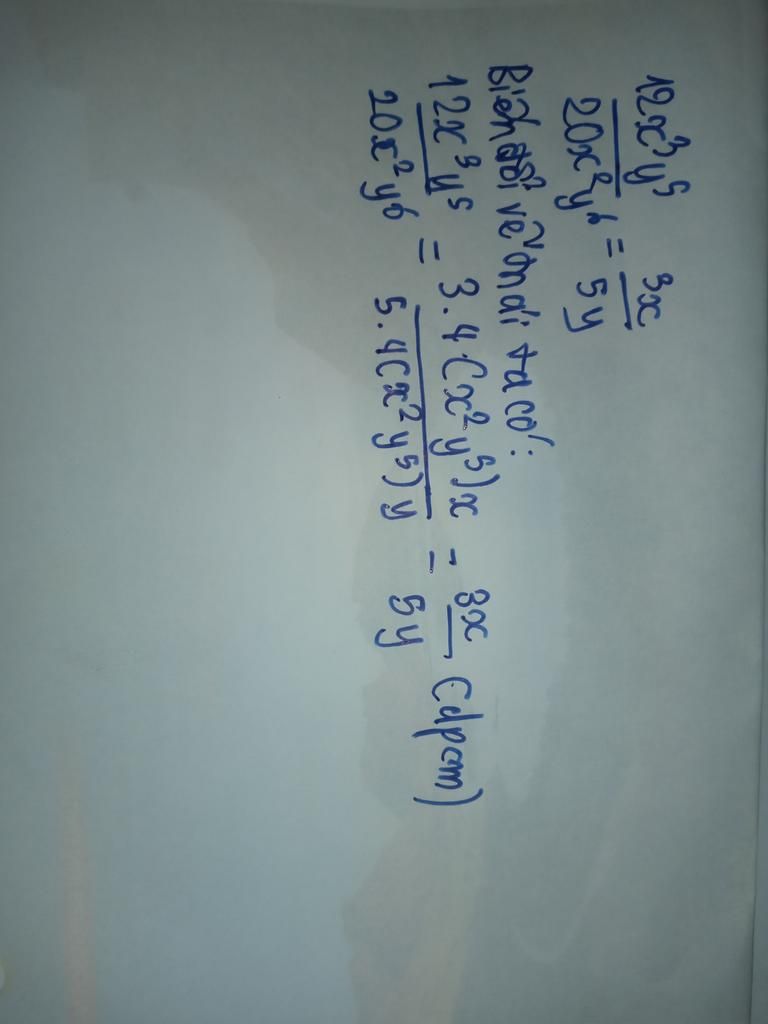 12x³y⁵/20x²y⁶ = 3x/5y
Biến đổi vế trái ta có:
12x³y⁵/20x²y⁶ = 3.4(x²y⁵)x/5.4(x²y⁵)y = 3x/5y (dpcm)